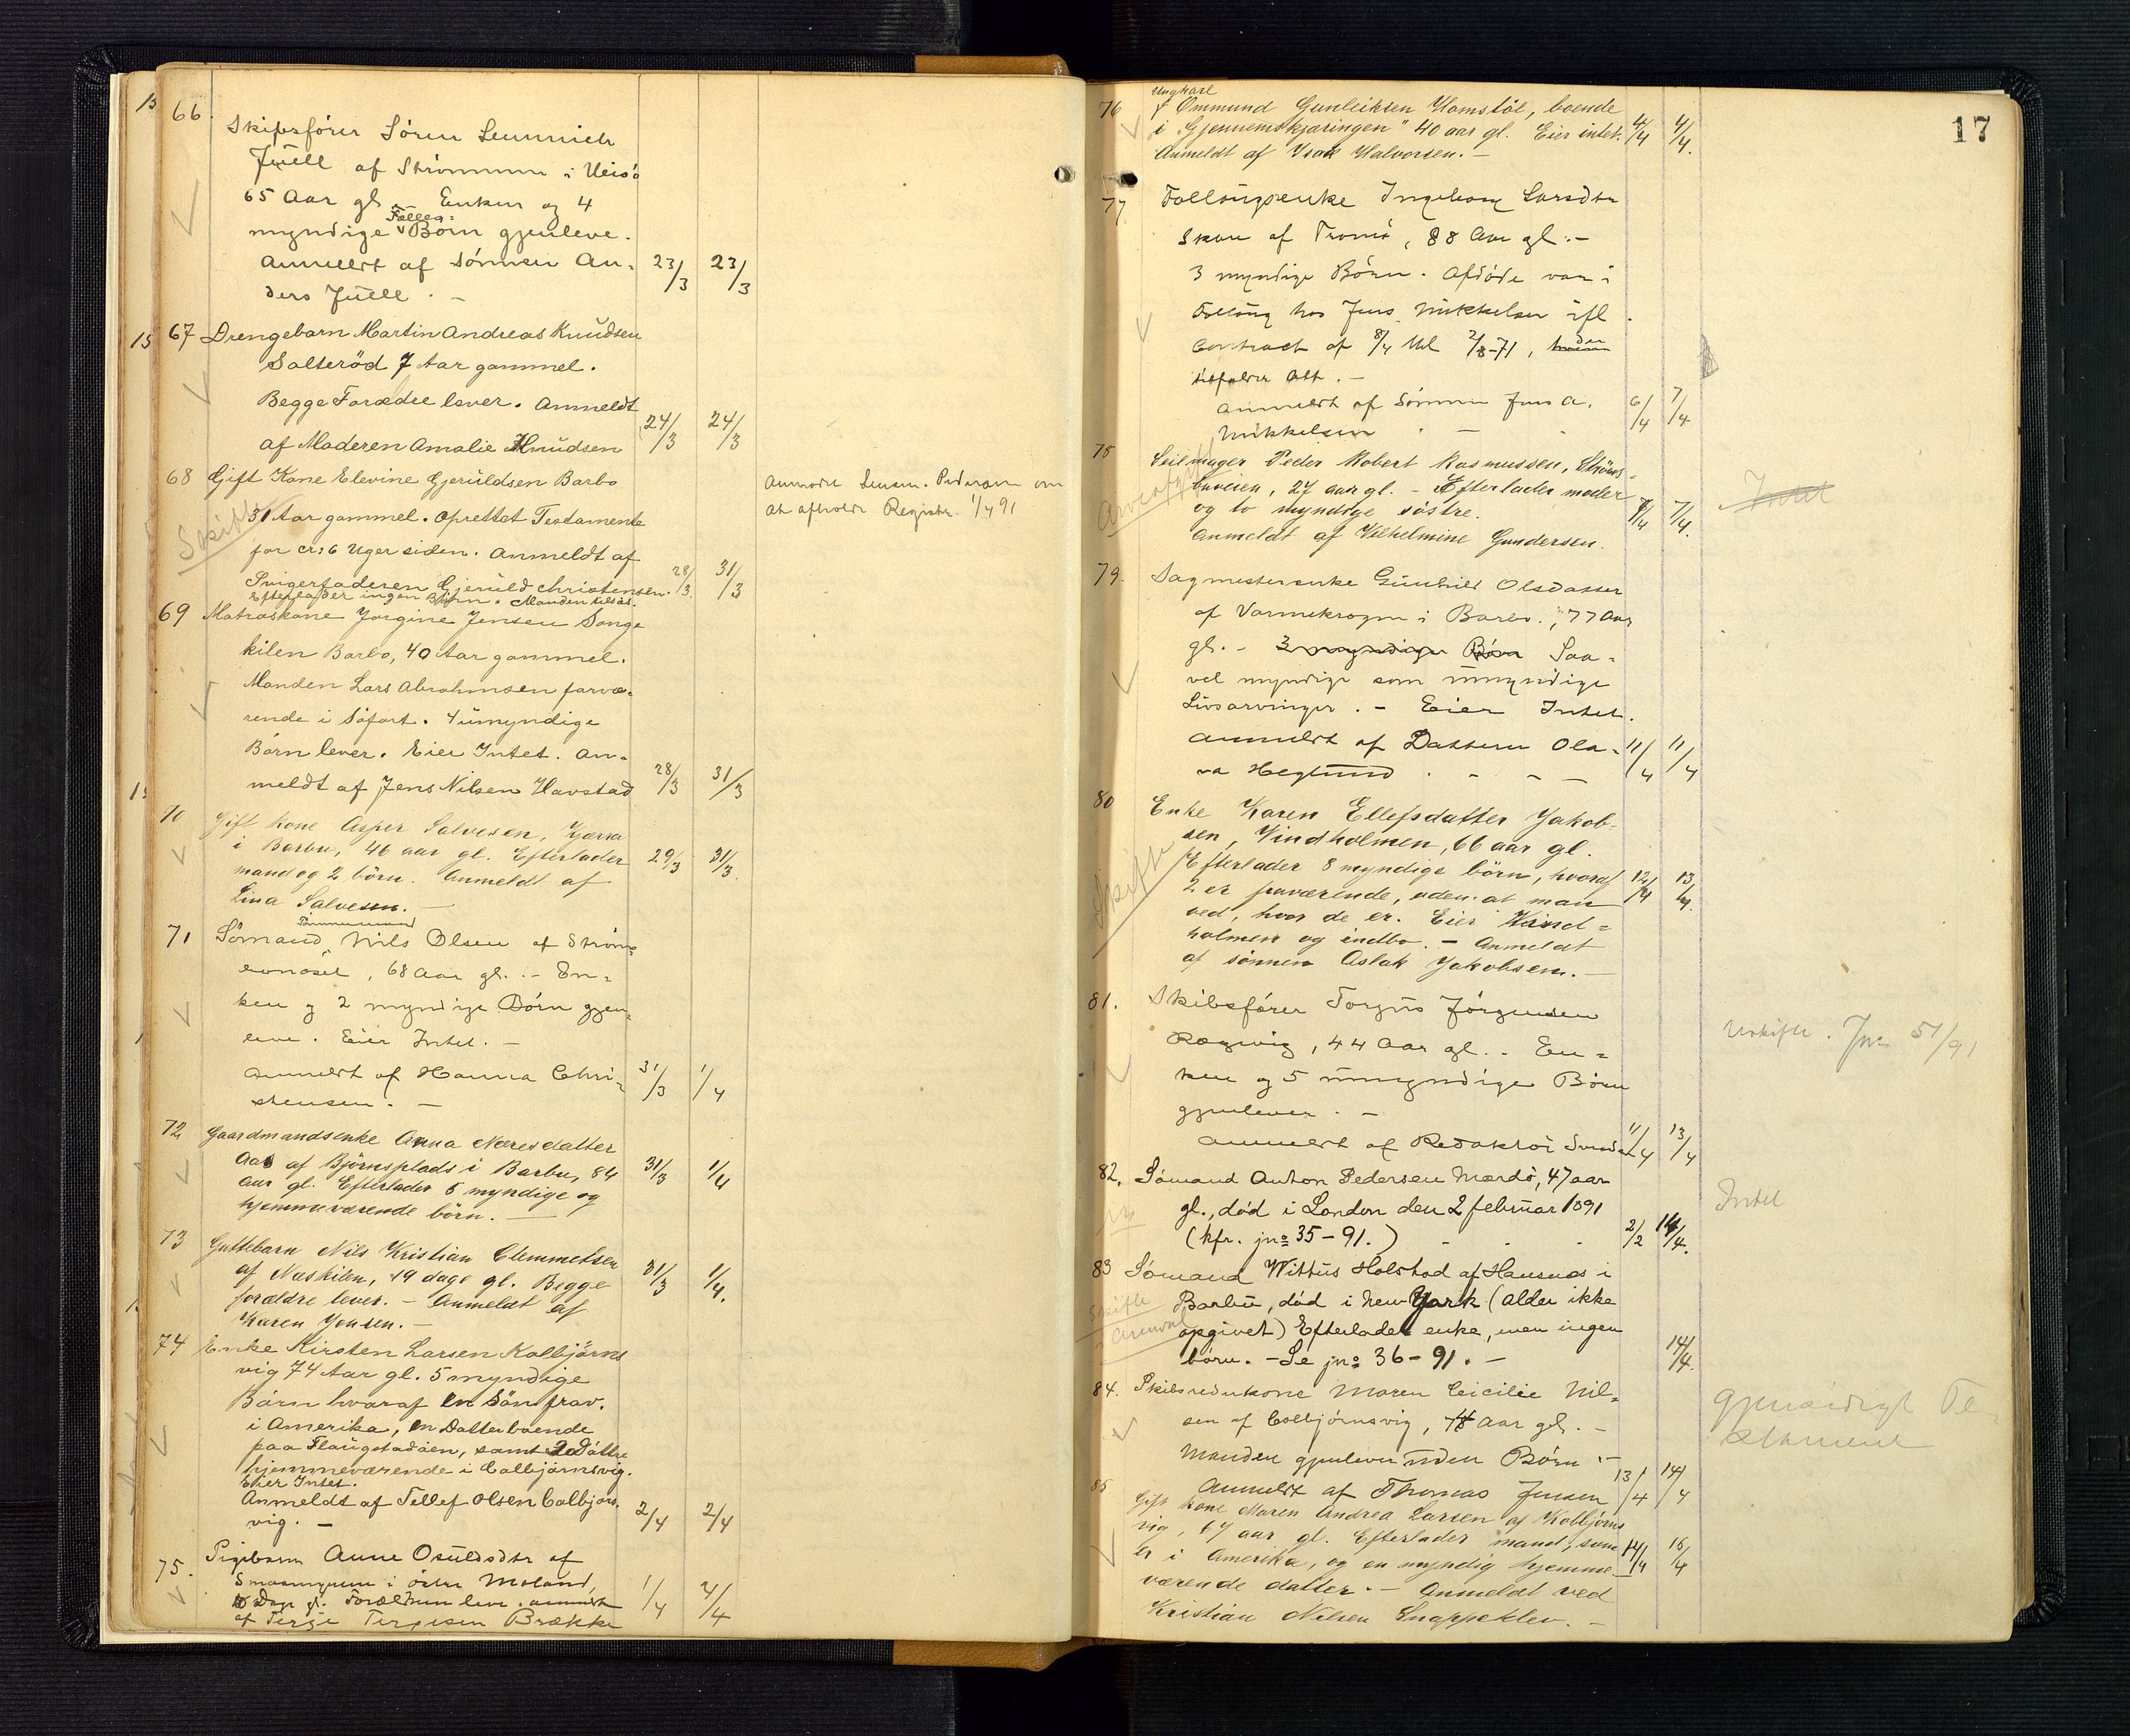 66.
Skibsfører Sören Lemmich
Juell af Strömmen i
65 Aar gl. Enken og 4
myndige Fælles= Börn gjenleve.
Anmeldt af Sönnen An=
ders Juell. — 23/3 23/3
67 Drengebarn Martin Andreas Knudsen
Salteröd 7 Aar gammel.
Begge Forældre lever. Anmeldt
af Moderen Amalie Knudsen 24/3 24/3
68 Gift Kone Elevine Gjeruldsen Barbo
31 Aar gammel. Oprettet Testamente
for cr: 6 Uger siden. Anmeldt af
Svigerfaderen Gjeruld Christensen. 28/3. 31/3
Efterlader ingen Børn. Manden
Skifte
Anmodet Lensm. Pedersen om
at afholde Registr. 1/4 91
69 Matroskone Jorgine Jensen Songe
kilen Barbo, 40 Aar gammel.
Manden Lars Abrahmsen farvæ=
rende i Söfart. 4 umyndige
Börn lever. Eier Intet. An=
meldt af Jens Nilsen Havstad 28/3 31/3
70 Gift kone Asper Salvesen, Kjærra
i Barbu, 46 aar gl. Efterlader
mand og 2 börn. Anmeldt af
Lina Salvesen. — 29/3 31/3.
71 Sömand, Tömmermand Nils Olsen af Ström=
, 68 Aar gl. - En=
ken og 2 myndige Börn gjen=
leve. Eier Intet. —
Anmeldt af Hanna Chri=
stensen. — 31/3 1/4
72 Gaardmandsenke Anna Neresdatter
Aas af Björnsplads i Barbu, 84
aar gl. Efterlader 5 myndige og
hjemmeværende börn. — 31/3 1/4
73 Guttebarn Nils Kristian Clemmetsen
af Neskilen, 19 dage gl. Begge
forældre lever. — Anmeldt af
Karen Jonsen. — 31/3 1/4.
74 Enke Kirsten Larsen Kolbjörns
vig 74 Aar gl. 5 myndige
Börn hvoraf en Sön frav.
i Amerika, en Datter boende
paa Flaugstadöen, samt 2 Döttre
hjemmeværende i Colbjørnsvig.
Eier Intet.
Anmeldt af Tellef Olsen Colbjørs.
vig. — 2/4 2/4
75. Pigebarn Anne Osuldsdtr af
i östre Moland,
Dage gl. Forældrene leve. Anmeldt
af Terje Terjesen Brække 1/4 2/4
17
76 Ungkarl Ommund Gunleiksen Homstöl, boende
i "Gjennemskjæringen" 40 aar gl. Eier intet.
Anmeldt af Isak Halvorsen. — 4/4 4/4.
77 Follaugsenke Ingeborg Larsdtr
Skare af Tromö, 88 Aar gl. —
3 myndige Börn. Afdöde var i
Follaug hos Jens Mikkelsen ifl.
Contract af 8/4 thl 2/8-71, der
tilfalder Alt. —
Anmeldt af Sönnen Jens A.
Mikkelsen — 6/4 7/4
78 Seilmager Peder Robert Rasmussen, Ströms=
buveien, 27 aar gl. — Efterlader moder
og to myndige söstre.
Anmeldt af Vilhelmine Gundersen. 7/4 7/4.
Intet
79. Sagmesterenke Gunhild Olsdatter
af Varmekrogen i Barbo., 77 Aar
gl. — 3 myndige Börn Saa=
vel myndige som umyndige
Livsarvinger. — Eier Intet.
Anmeldt af Datteren Ola=
va Heglund — 11/4 11/4
80 Enke Karen Ellefsdatter Jakob=
sen, Vindholmen, 66 aar gl.
Efterlader 8 myndige börn, hvoraf
2 er fraværende, uden at man
ved, hvor de er. Eier Vind=
holmen og indbo. — Anmeldt
af sönnen Aslak Jakobsen. — 12/4 13/4.
Skifte
81. Skibsfører Torjus Jörgensen
Rægevig, 44 Aar gl. - En=
ken og 5 umyndige Börn
gjenlever. —
Anmeldt af Redaktör 11/4 13/4
Uskifte. Jno 51/91
82. Sömand Anton Pedersen Mærdö, 47 aar
gl., död i London den 2 februar 1891
(kfr. jno 35-91.) 2/2 14/4.
Intet
83 Sömand Wittus Holstad af Hausnæs i
Barbu, död i New York (alder ikke
opgivet) Efterlader enke, men ingen
börn. — Se jno 36-91. — 14/4.
Skifte
84. Skibsrederkone Maren Ceicilie Nil=
sen af Colbjörnsvig, 78 Aar gl. —
Manden gjenlever uden Börn. —
Anmeldt af Thomas Jensen 13/4 14/4
Gjensidigt Te=
stament
85 Gift kone Maren Andrea Larsen af Kolbjörns
vig, 67 aar gl. Efterlader mand, som
er i Amerika, og en myndig hjemme=
værende datter. — Anmeldt ved
Kristian Nilsen Snappeklev. — 14/4 15/4